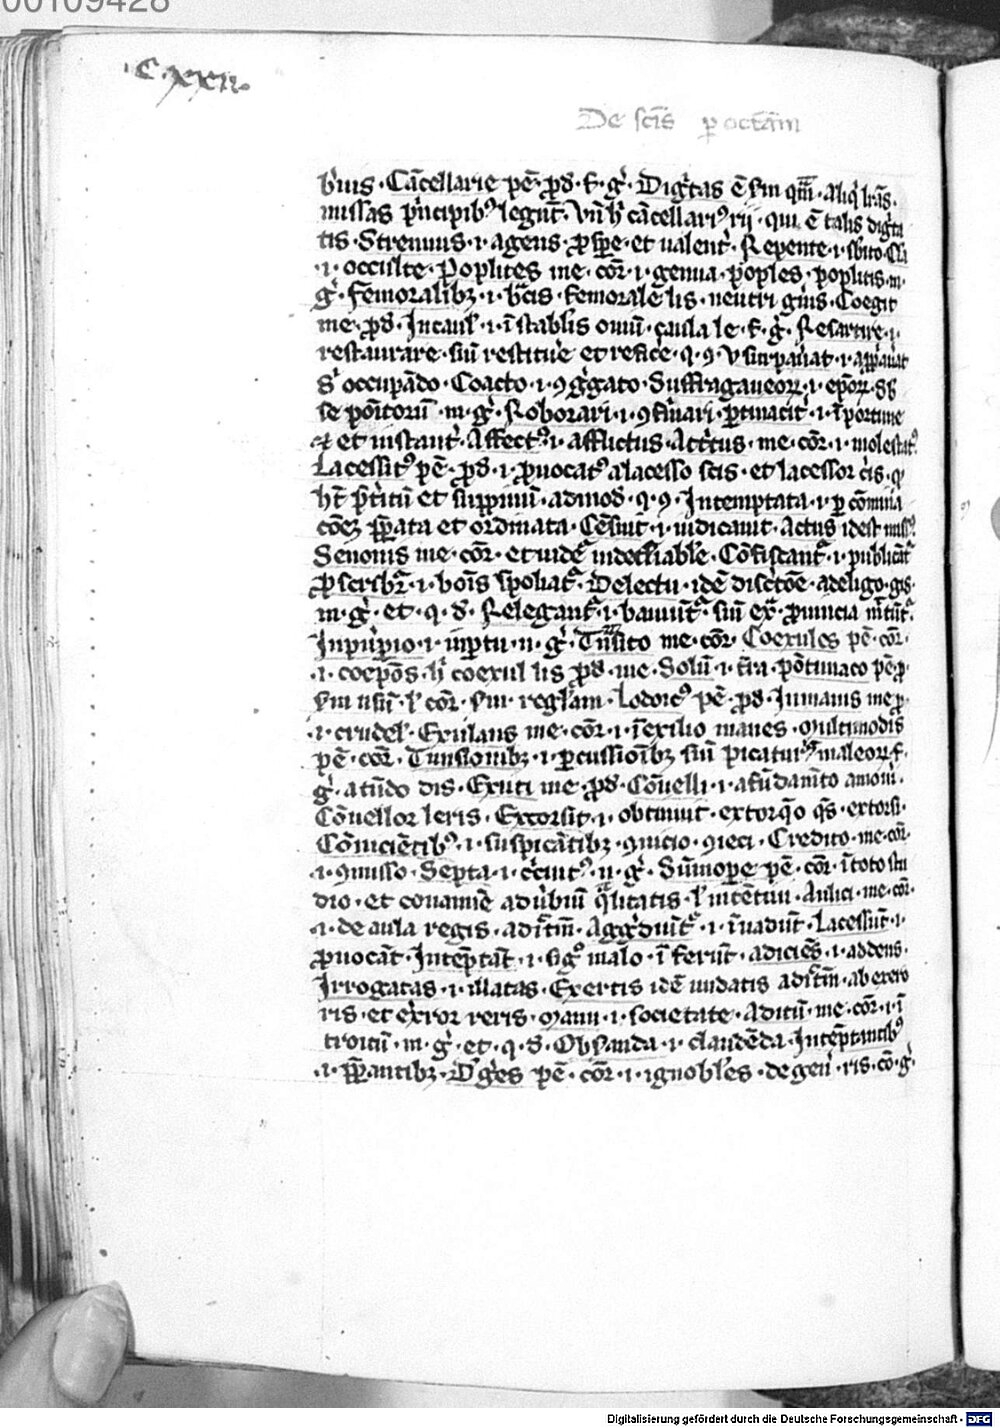 00109428
.C.xxii.
De scis p octam
b'uis . Cācellarie pe . pd . f . g' . Dig'tas ē sm qm̄ . aliq' lr̄as .
missas p'ncipib' legūt . Vn̄ h' cācellari' rii . qui ē talis dig'ta
tis . Strenuus . i . agens . pspe . et ualent' . Repente . i . sbito . Clā
. i . occulte . Poplites me . cor̄ . i . genua . poples . poplitis . m .
g' . Femoralibz . i . bc̄is . femorale lis . neutri gn̄is . Coegit
me . pd . Incaul' . i . ī stablis ouiū . caula le . f . g' . Resartire . i .
restaurare . siū restitue' et refice' . q . 9 . Vsurpauāt . i . appauāt
s' occupādo . Coacto . i . 9g'gato . Suffraganeorz . i . ep̄orz . ss
se pōitorū . m . g' . Roborari . i . 9firmari . ptinacit' . i . īportune
et instant' . Affect' . i . afflictus . Att'tus . me . cor̄ . i . molestat'
Lacessit' pe . pd . i . puocat' a lacesso scis . et lacessor c'is . q'
ht' pt'itū et suppinū . ad mod' . q . 9 . Intemptata . i . p cōmuia
cōez ppata et ordinata . Cēsuit . i . iudicauit . Actus idest miss'
Senonis me . cor̄ . et uide' indecliable . Cōfiscant' . i . publicāt'
pscribr' . i . bois spoliat' . Delectu . idē disc'tōe . a deligo . gis .
m . g' . et . q . d . Relegant' . i . baniūt' . siū ex' puincia mittūt' .
Inpurpio . i . inptu . n . g' . Tn̄sito me . cor̄ . Coexules pe . cor̄ .
. i . coep̄os . h' coexul lis pd . me . Solū . i . t'ra . pōtumaco pe . p .
sm usū . l' cor̄ . sm . regl'am . Lodoic' pe . pd . Inmanis me p .
. i . crudel' . Exulans me . cor̄ . i . ī exilio manes . Multimodis
pe . cor̄ . Tunsionibz . i . pcussioibz siū picatur' maleorz . f .
g' . a tūdo dis . Exuti me . pd . Cōuelli . i . a fūdamēto amoui .
Cōuellor leris . Extorsit . i . obtinuit . extorqo q's . extorsi .
Cōnicientib' . i . suspicātibz . 9nicio . 9ieci . Credito . me . cor̄
. i . 9misso . Septa . i . c'cuit' . n . g' . Sūmope pe . cor̄ . ī toto stu
dio . et conamie aduerbiū q'litatis . l' intētiu . Aulici . me . cor̄ .
. i . de aula regis . adiectm̄ . Aggrediūt' . i . īuadūt . Lacessūt . i .
puocāt . Inteptāt . i . sig' malo . ī ferūt . adiciēs . i . addens .
Irrogatas . i . illatas . Exertis idē nudatis adiectm̄ . ab exero
ris . et exeror reris . Manu . i . societate . Aditū . me . cor̄ . i . ī
troitū . m . g' . et . q . d . Obs'anda . i . claudēda . Inteptantib'
. i . ppantibz . Deg'es pe . cor̄ . i . ignobl'es . degen' . ris . cō . g' .
Digitalisierung gefördert durch die Deutsche Forschungsgemeinschaft - DFG